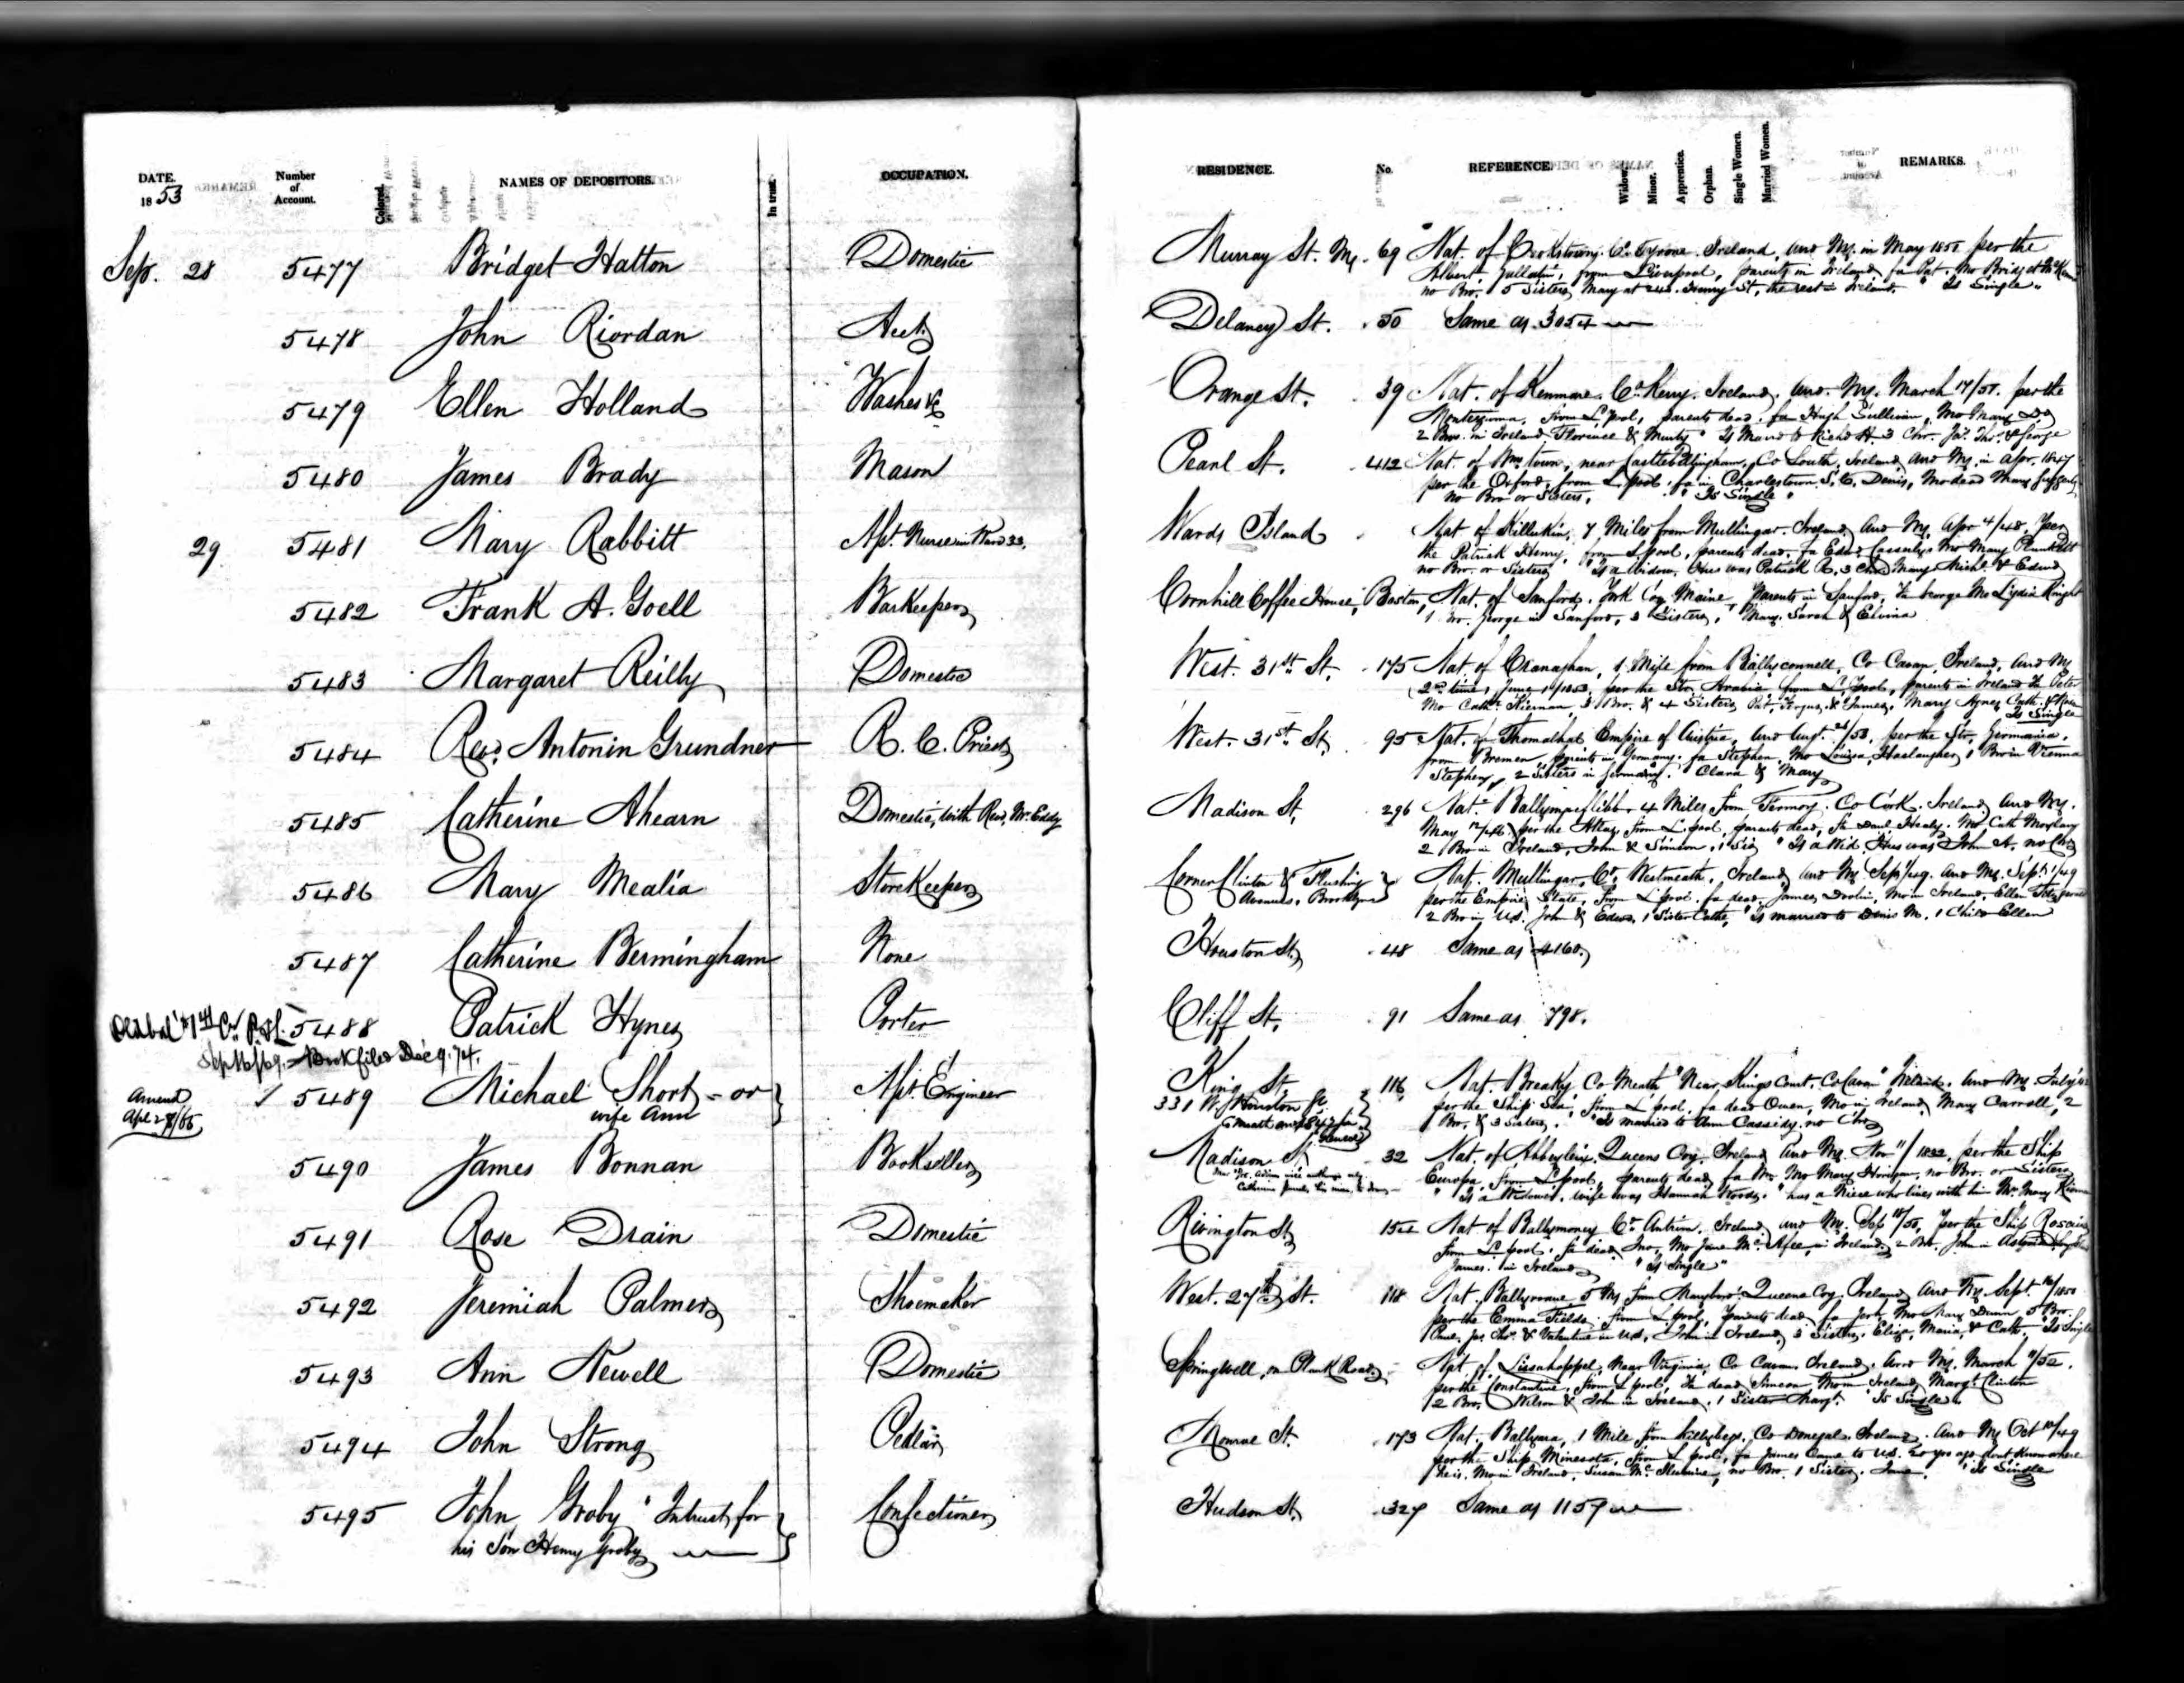 DATE. Number of Account. Colored. NAMES OF DEPOSITORS. In trust. OCCUPATION. RESIDENCE. No. REFERENCE. Widow. Minor. Apprentice. Orphan. Single Women. Married Women. REMARKS.
1853
Sep. 28 5477 Bridget Hatton Domestic Murray St. 69 Nat. of Cookstown Co. Tyrone Ireland, Arrd NY. in May 1850 per the
Albert Gallatin, from Liverpool, parents in Ireland, fa Pat. Mo Bridget
no Bro. 5 Sisters, Mary at Henry St, the rest in Ireland. " Is Single "
5478 John Riordan Delancy St. 50 Same as 3054
5479 Ellen Holland Washes &c Orange St. 39 Nat. of Kenmare Co Kerry. Ireland. Arrd. NY. March per the
Montezuma, from L'pool, parents dead, fa Hugh Sullivan, Mo Mary Do
2 Bros. in Ireland Florence & Murty " Is Marrd to Richd H 3 Chn. Jas. Thos. & George
5480 James Brady Mason Pearl St. 412 Nat. of near Castlebellingham, Co Louth, Ireland, Arrd NY. in Apr. 1847
per the Oxford, from L'pool, fa in Charlestown S.C. Denis, Mo dead Mary
no Bro or Sisters, " Is Single "
29 5481 Mary Rabbitt Apt. Nurse in Ward 33. Wards Island Nat of Killukin, 7 Miles from Mullingar. Ireland, Arrd NY, Apr 4/48, per
the Patrick Henry, from L'pool, parents dead, fa Edwd Casserly Mo Mary Plunkett
no Bro. or Sisters " Is a Widow, Hus was Patrick R, 3 Chn Mary Michl. & Edwd
5482 Frank A. Goell Barkeeper Cornhill Coffee House, Boston, Nat. of Sanford, York Coy Maine, Parents in Sanford, Fa George Mo Lydia Knight
1 Bro. George in Sanford, 3 Sisters, Mary, Sarah & Elvina
5483 Margaret Reilly Domestic West. 31st St. 175 Nat. of Cranaghan, 1 Mile from Ballyconnell, Co Cavan Ireland, Arrd NY
2nd time, June 1/1853, per the Str. Arabia, from L'pool, parents in Ireland Fa Peter
Mo Cathe Kiernan, 3 Bro. & 4 Sisters Pat, Fergus, & James, Mary Agnes Cath. & Rose
Is Single
5484 Revd. Antonin Grundner R. C. Priest West. 31st St. 95 Nat. of Thomathal Empire of Austria, Arrd Augt. /53, per the Str, Germania,
from Bremen, parents in Germany. fa Stephen, Mo Louisa, 1 Bro in Vienna
Stephen, 2 Sisters in Germany. Clara & Mary
5485 Catherine Ahearn Domestic, with Rev. Mr. Eddy Madison St. 296 Nat. 4 Miles from Fermoy. Co Cork. Ireland, Arrd NY.
May per the from L'pool, parents dead, fa Danl Healy. Mo Cath Moriarty
2 Bro in Ireland, John & Simeon, 1 Sis " Is a Wid. Hus was John A. no Chn
5486 Mary Mealia StoreKeeper Corner Clinton & Flushing Nat. Mullingar, Co. Westmeath, Ireland, Arrd NY. Sep 1/49. Arrd NY. Sept. 1/49
Avenues, Brooklyn per the Empire State, from L'pool. fa dead, James Mo in Ireland, Ellen Fitzgerald
2 Bro in U.S. John & Edwd, 1 Sister Cathe, " Is married to Denis M. 1 Child Ellen
5487 Catherine Bermingham None Houston St. 48 Same as 4160
5488 Patrick Hynes Porter Cliff St. 91 Same as 798.
Book filed Dec 9. 74.
5489 Michael Short - or Apt. Engineer King St. 116 Nat. Breaky Co Meath "Near Kings Court, Co Cavan" Ireland. Arrd NY. July
Amend wife Ann 331 W. Houston St. per the Ship Sea, from L'pool. fa dead Owen, Mo in Ireland Mary Carroll, 2
Apl 27/65 Bro. & 3 Sisters. " Is married to Ann Cassidy. no Chn
5490 James Bonnan Bookseller Madison St 32 Nat. of Abbeyleix. Queens Coy. Ireland Arrd NY. Nov 11/1832, per the Ship
Europa, from L'pool, parents dead, fa Wm Mo Mary no Bro. or Sisters
" Is a Widower, wife was Hannah Woods. " has a Niece who lives with him Mrs Mary
5491 Rose Drain Domestic Rivington St Nat of Ballymoney Co. Antrim. Ireland, Arrd NY. Sep 18/50, per the Ship Roscius
from L'pool. fa dead, Jno, Mo Jane McAfee, in Ireland, 2 Bro. John in
James. in Ireland " Is Single "
5492 Jeremiah Palmer Shoemaker West. 27th St. 118 Nat. Ballyroane 5 Ms from Maryboro. Queens Coy. Ireland Arrd NY. Sept. 16/1850
per the Emma Fields, from L'pool, parents dead, fa Mo Mary Dunn, 5 Bro.
& Valentine in U.S. John in Ireland, 3 Sisters, Eliza, Maria, & Cath. Is Single
5493 Ann Newell Domestic Springwell, on Plank Road, Nat. of near Virginia, Co Cavan, Ireland. Arrd NY. March 11/52,
per the Constantine, from L'pool, Fa dead Simeon Mo in Ireland, Margt. Clinton
2 Bro. Wilson & John in Ireland, 1 Sister Margt. " Is Single "
5494 John Strong Pedlar Monroe St. 173 Nat. 1 Mile from Killybegs, Co Donegal. Ireland. Arrd NY Oct 10/49
per the Ship, Minesota, from L'pool, fa James Came to U.S. 20 yrs ago dont know where
he is. Mo in Ireland, Susan no Bro. 1 Sister. Jane. " Is Single
5495 John Groby " In trust for Confectioner Hudson St. 327 Same as 1157
his Son Henry Groby